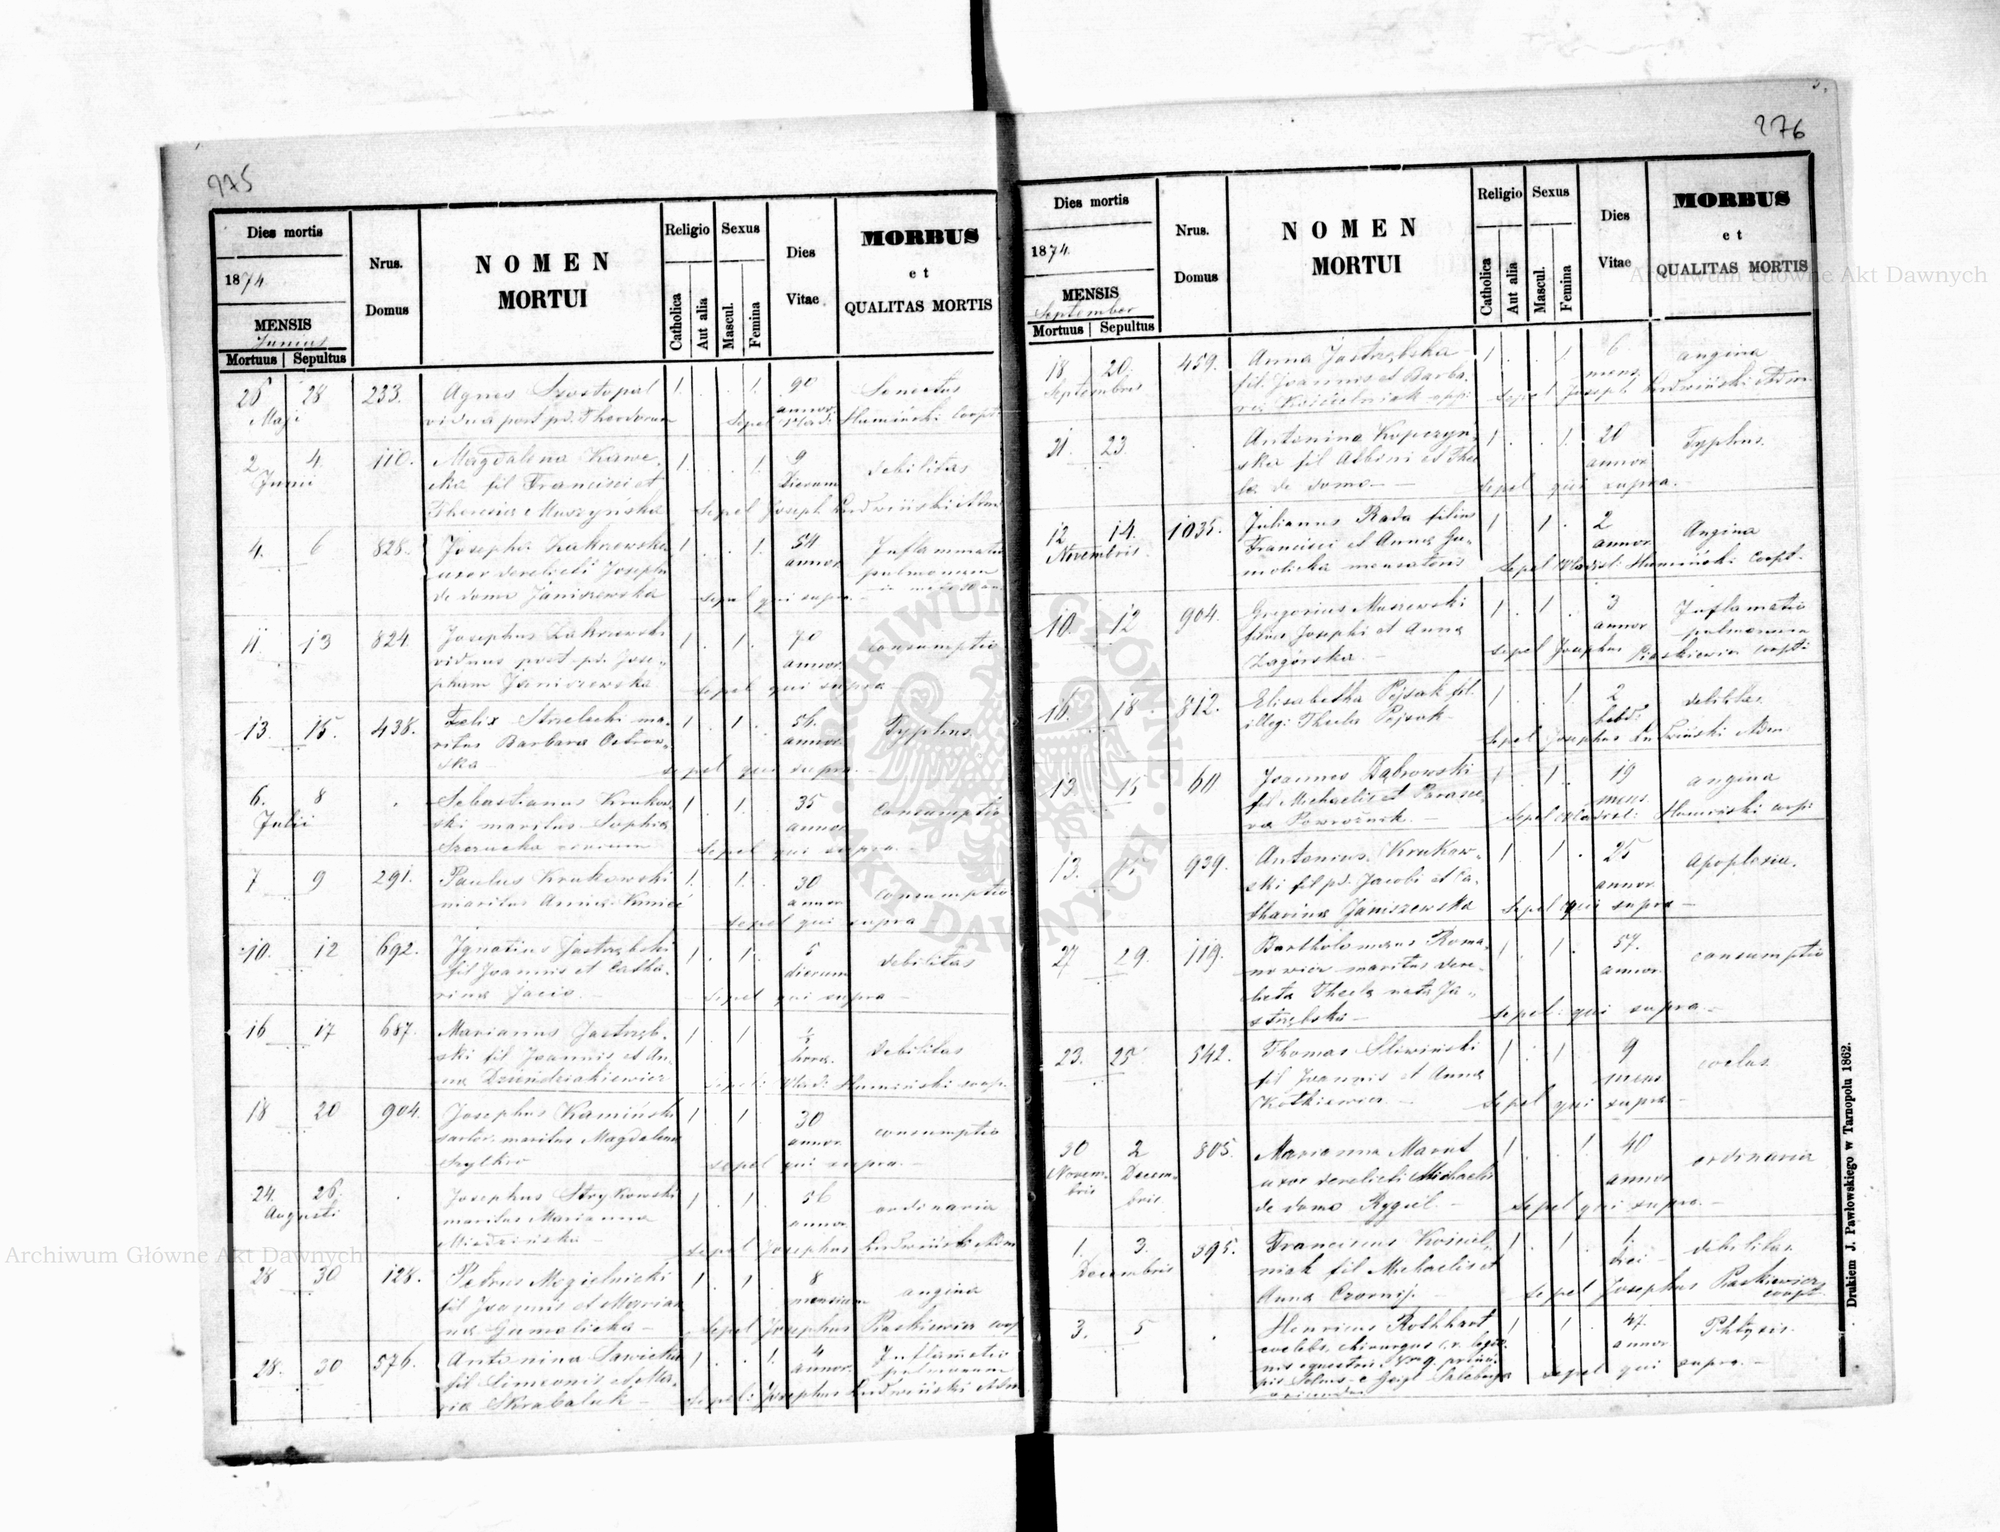 275
Dies mortis
1874.
MENSIS
Junius
Mortuus Sepultus
Nrus.
Domus
NOMEN
MORTUI
Religio
Catholica
Aut alia
Sexus
Mascul.
Femina
Dies
Vitae
MORBUS
et
QUALITAS MORTIS
26 28 233. Agnes 1 . . 1. 90 Senectus
Maji vidua post pd. Theodorum annor.
Sepel Vlad: Humiński Coopt
2 4. 110. Magdalena 1. . . 1. 9 debilitas
Junii fil Francisci et Dierum
Theresia Muszyńska Sepel Joseph Ludwiński Adm
4. 6 828. Josepha Zakrzewska 1 . . 1. 54 Inflammatio
uxor derelicti Josephi annor pulmonum
de domo Janiszewska sepel qui supra.
11. 13 824. Josephus Zakrzewski 1 . 1. 70 consumptio
viduus post pd. Jose- annor.
pham Janiszewska sepel qui supra
13. 15. 438. Felix Strzelecki ma- 1 . 1 . 56. Typhus
ritus Barbara Ostrow- annor.
ska sepel qui supra.
6. 8 . Sebastianus Krukow- 1 . 1. 35 Consumptio
Julii ski maritus Sophia annor
sepel qui supra.
7 9 291. Paulus Krukowski 1. . 1. 30 consumptio
maritus Anna annor
sepel qui supra
10. 12 692. Ignatius Jastrzębski 1 . 1. 5 debilitas
fil Joannis et Catha- dierum
rina sepel qui supra
16 17 687. Marianus Jastrzęb- 1 . 1 debilitas
ski fil Joannis et An- hora.
na Dziundziakiewicz sepel: Vlad: Humiński coop.
18 20 904. Josephus Kamiński 1 . 1 30 consumptio
sartor. maritus Magdalena annor.
sepel qui supra.
24. 26. . Josephus Strykowski 1 . 1 . 56 ordinaria
Augusti maritus Marianna annor
sepel Josephus Ludwiński Adm
28 30 128. Petrus Mogielnicki 1 . 1 8 angina
fil Joannis et Marian- mensium
na Gamolicka Sepel Josephus Piaskiewicz coop
28. 30 576. Antonina Sawicka 1 . . 1. 4 Inflamatio
fil Simeonis et Ma- annor. pulmonum
ria Skrabaluk sepel: Josephus Ludwiński Adm
276
Dies mortis
1874.
MENSIS
September
Mortuus Sepultus
Nrus.
Domus
NOMEN
MORTUI
Religio
Catholica
Aut alia
Sexus
Mascul.
Femina
Dies
Vitae
MORBUS
et
QUALITAS MORTIS
18 20. 459. Anna Jastrzębska 1 . . 1 6 angina
Septembris fil. Joannis et Barba- mens.
ra Kościelniak Sepel Joseph: Ludwiński Adm
21. 23 . Antonina Kopczyń- 1 . . 1. 26 Typhus.
ska fil Albini et Thec- annor
la de domo sepel qui supra.
12 14. 1035. Julianus Rada filius 1 . 1 . 2 Angina
Novembris. Francisci et Anna Ga- annor
molicka Sepel Vladisl: Humiński Coopt.
10. 12 904. Gregorius Muszewski 1 . 1 . 3 Inflamatio
filius Josephi et Anna annor pulmonum
Zagórska. sepel Josephus Piaskiewicz coopt
16. 18. 812. Elisabetha Pejsak fil. 1 . . 1 2 debilitas
illeg: Thecla Pejsak hebd:
Sepel Josephus Ludwiński Adm
13. 15 611 Joannes Dąbrowski 1 . 1 . 19 angina
fil Michaelis et Parasce- mens.
va Powroźnik. Sepel Vladisl: Humiński coop:
13. 15 939. Antonius Krukow- 1. . 1 . 25 apoplexia.
ski fil pd. Jacobi et Ca- annor
tharina Janiszewska sepel qui supra
27 29. 119. Bartholomaeus Roma- 1 . 1 . 57. consumptio
nowicz maritus dere- annor.
licta Thecla nata Ja-
strzębska sepel: qui supra.
23. 25 542. Thomas Śliwiński 1 . 1 . 9
fil Joannis et Anna mens
Kotkiewicz. sepel qui supra
30 2 805. Marianna Marut 1 . . 1 40 ordinaria
Novem- Decem- uxor derelicti Michaelis annor
bris bris de domo Rygiel. sepel qui supra.
1. 3. 395. Franciscus Kościel- 1. . 1 . 1. debilitas.
Decembris niak fil Michaelis et diei
Anna sepel Josephus Piaskiewicz
coopt
3. 5 . Henricus Rothhart 1 . 1 . 47. Phtysis.
coelebs, chirurgus annor
sepel qui supra.
Drukiem J. Pawłowskiego w Tarnopolu 1862.
ARCHIWUM GŁÓWNE AKT DAWNYCH
Archiwum Główne Akt Dawnych
Archiwum Główne Akt Dawnych